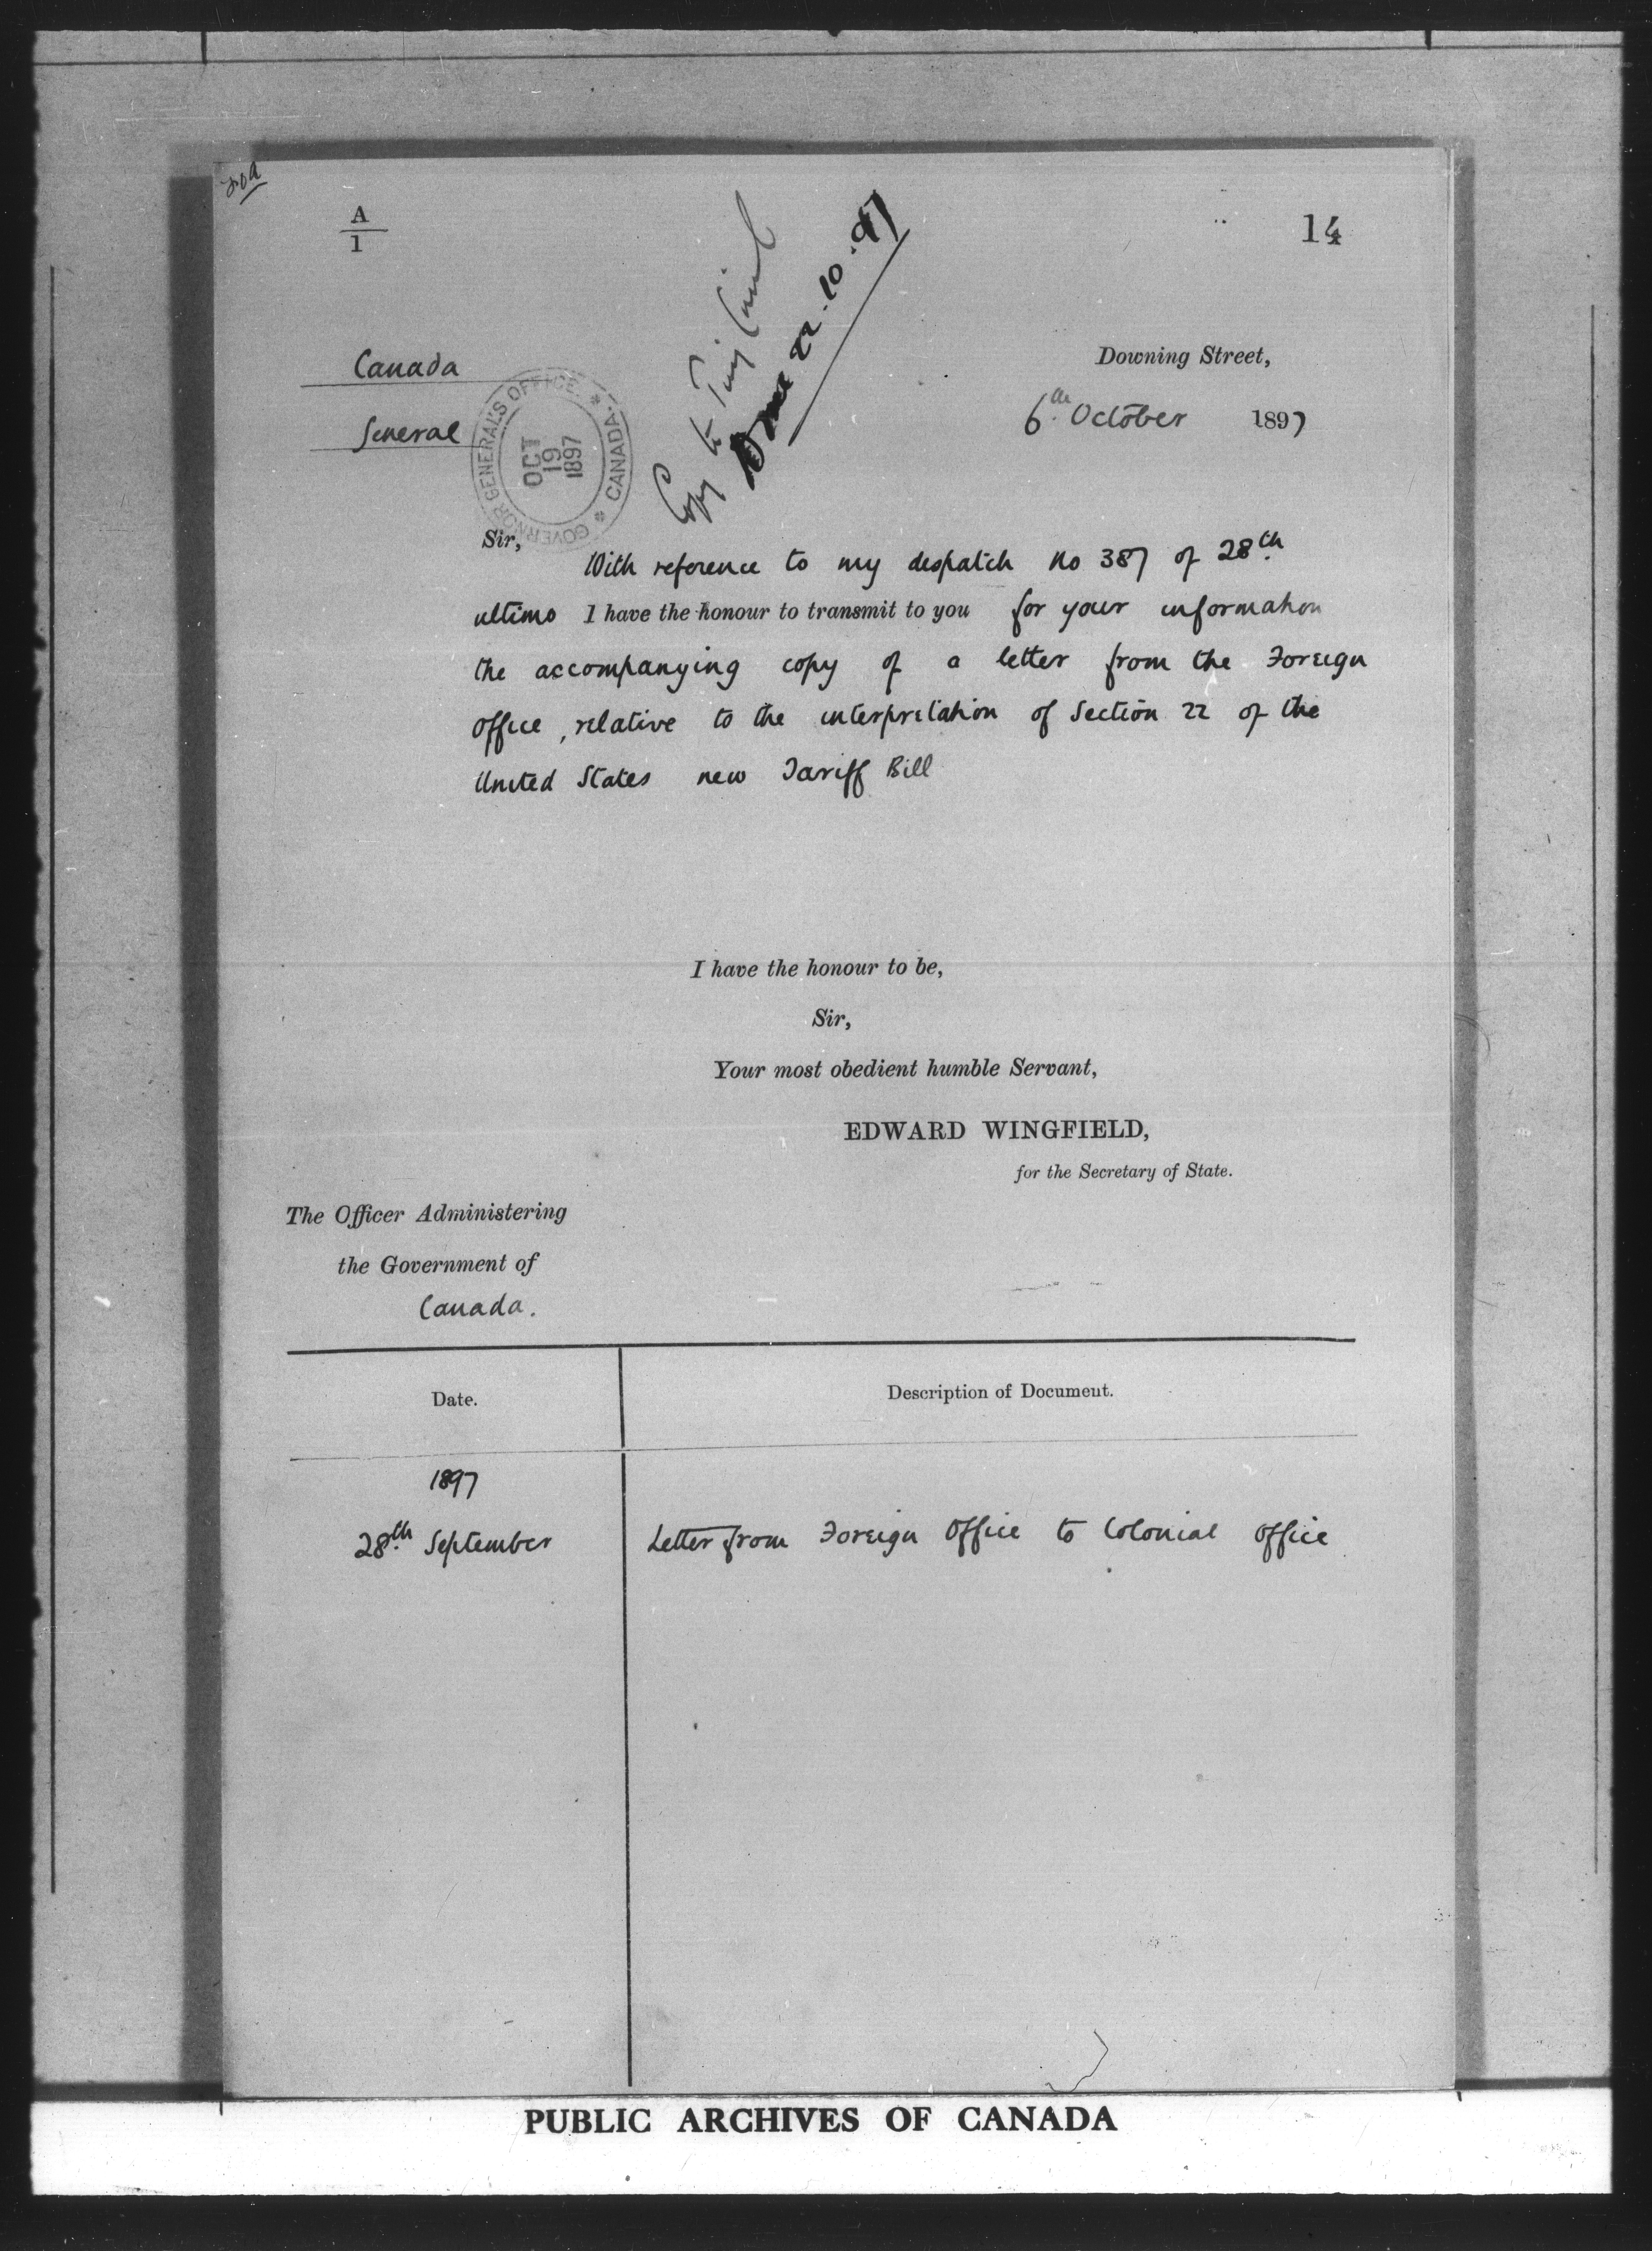 A
1
14
Copy to Privy Council
Done 22.10.97
Canada
General
GOVERNOR GENERAL'S OFFICE * CANADA *
OCT
19
1897
Downing Street,
6th October 1897
Sir,
With reference to my despatch no 387 of 28th
ultimo I have the honour to transmit to you for your information
the accompanying copy of a letter from the Foreign
Office, relative to the interpretation of Section 22 of the
United States new Tariff Bill
I have the honour to be,
Sir,
Your most obedient humble Servant,
EDWARD WINGFIELD,
for the Secretary of State.
The Officer Administering
the Government of
Canada.
Date. Description of Document.
1897
28th September Letter from Foreign Office to Colonial Office
PUBLIC ARCHIVES OF CANADA